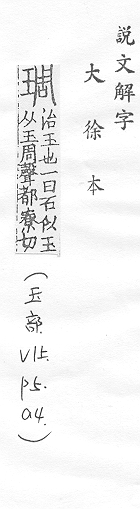 説文解字
大徐本
琱 治玉也一曰石似玉
从玉周聲都寮切
(玉部 V15. p5. a4.)